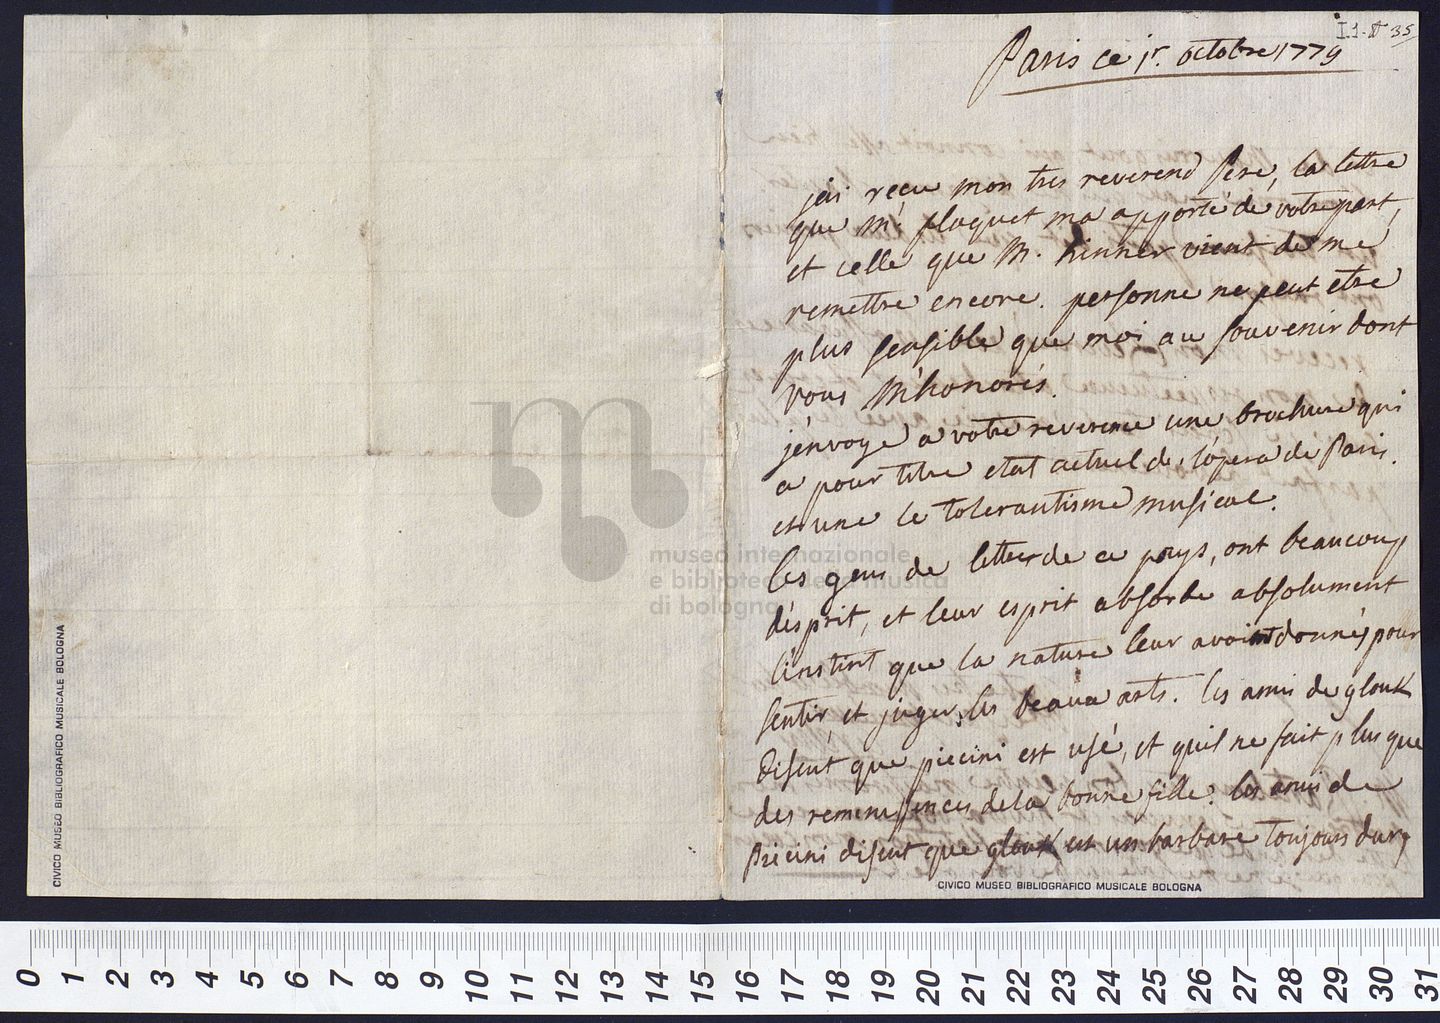 I.1. 35
Paris ce 1r. octobre 1779
j'ai reçu mon tres reverend Pere, la lettre
que Mr. plaquet ma apporté de votre part,
et celle que M. hinner vient de me
remettre encore. personne ne peut etre
plus sensible que moi au souvenir dont
vous M'honorés.
j'envoye a votre reverence une brochure qui
a pour titre etat actuel de l'opera de Paris.
et une le tolerantisme musical.
les gens de lettres de ce pays, ont beaucoup
d'esprit, et leur esprit absorbe absolument
l'instint que la nature leur avoit donnés pour
sentir, et juger, les beaux arts. les amis de glouk
disent que piccini est usé, et qu'il ne fait plus que
des reminissences de la bonne fille. les amis de
piccini disent que glouk est un barbare toujours dur,
museo internazionale
e biblioteca della musica
di bologna
CIVICO MUSEO BIBLIOGRAFICO MUSICALE BOLOGNA
CIVICO MUSEO BIBLIOGRAFICO MUSICALE BOLOGNA
0 1 2 3 4 5 6 7 8 9 10 11 12 13 14 15 16 17 18 19 20 21 22 23 24 25 26 27 28 29 30 31